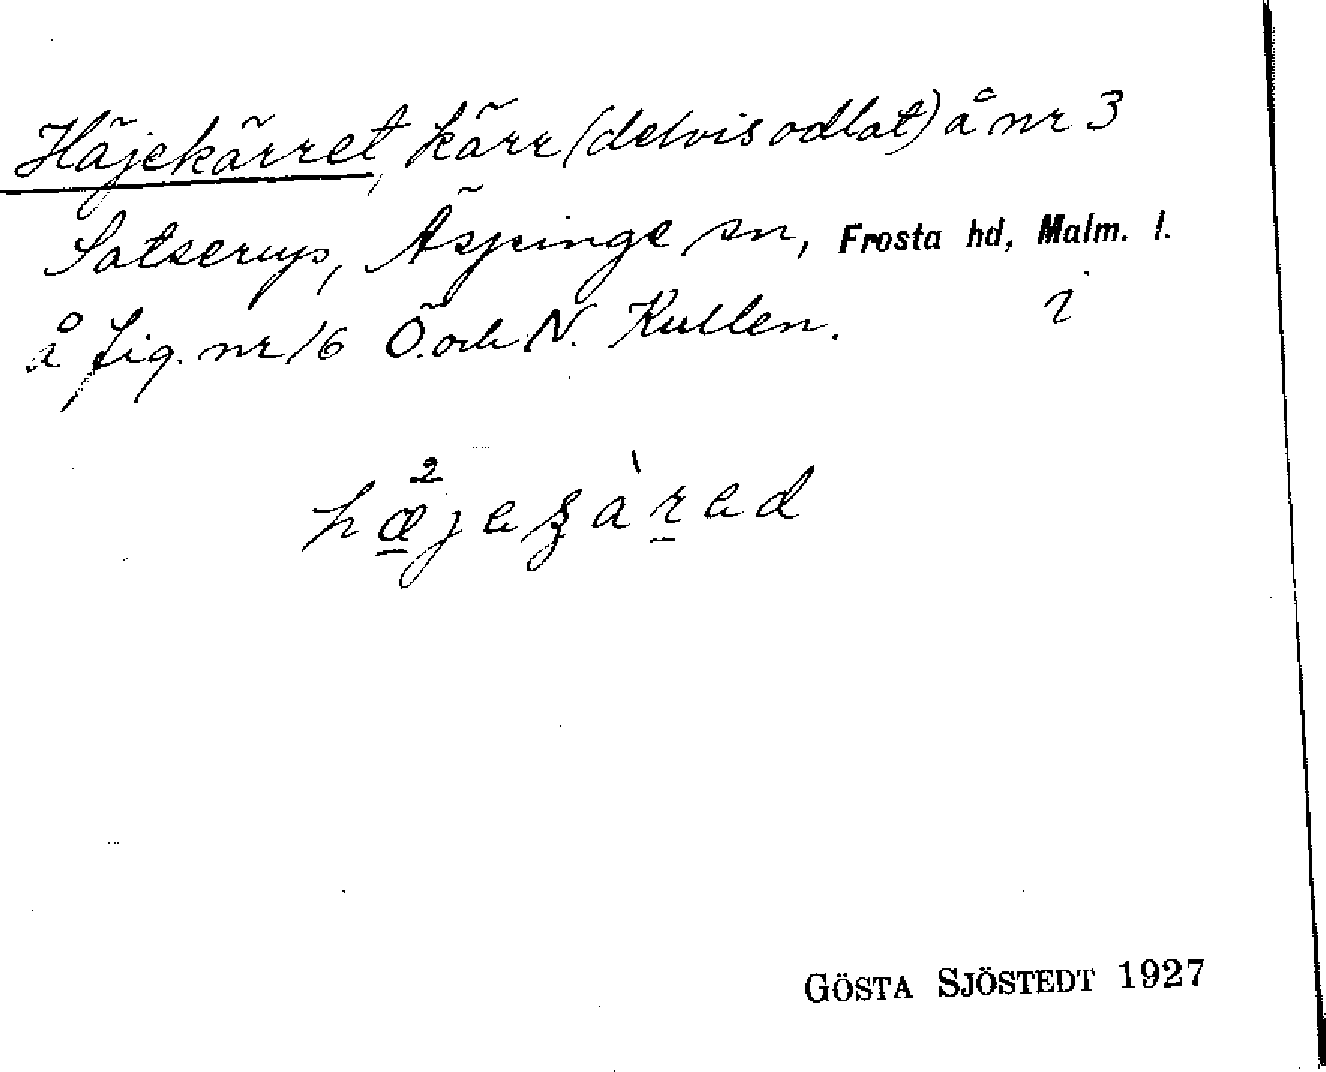 Häjekärret, kärr (delvis odlat) å nr 3
Satserup, Äspinge sn, Frosta hd, Malm. l.
å fig. nr 16 Ö. och N. Kullen. i
GÖSTA SJÖSTEDT 1927